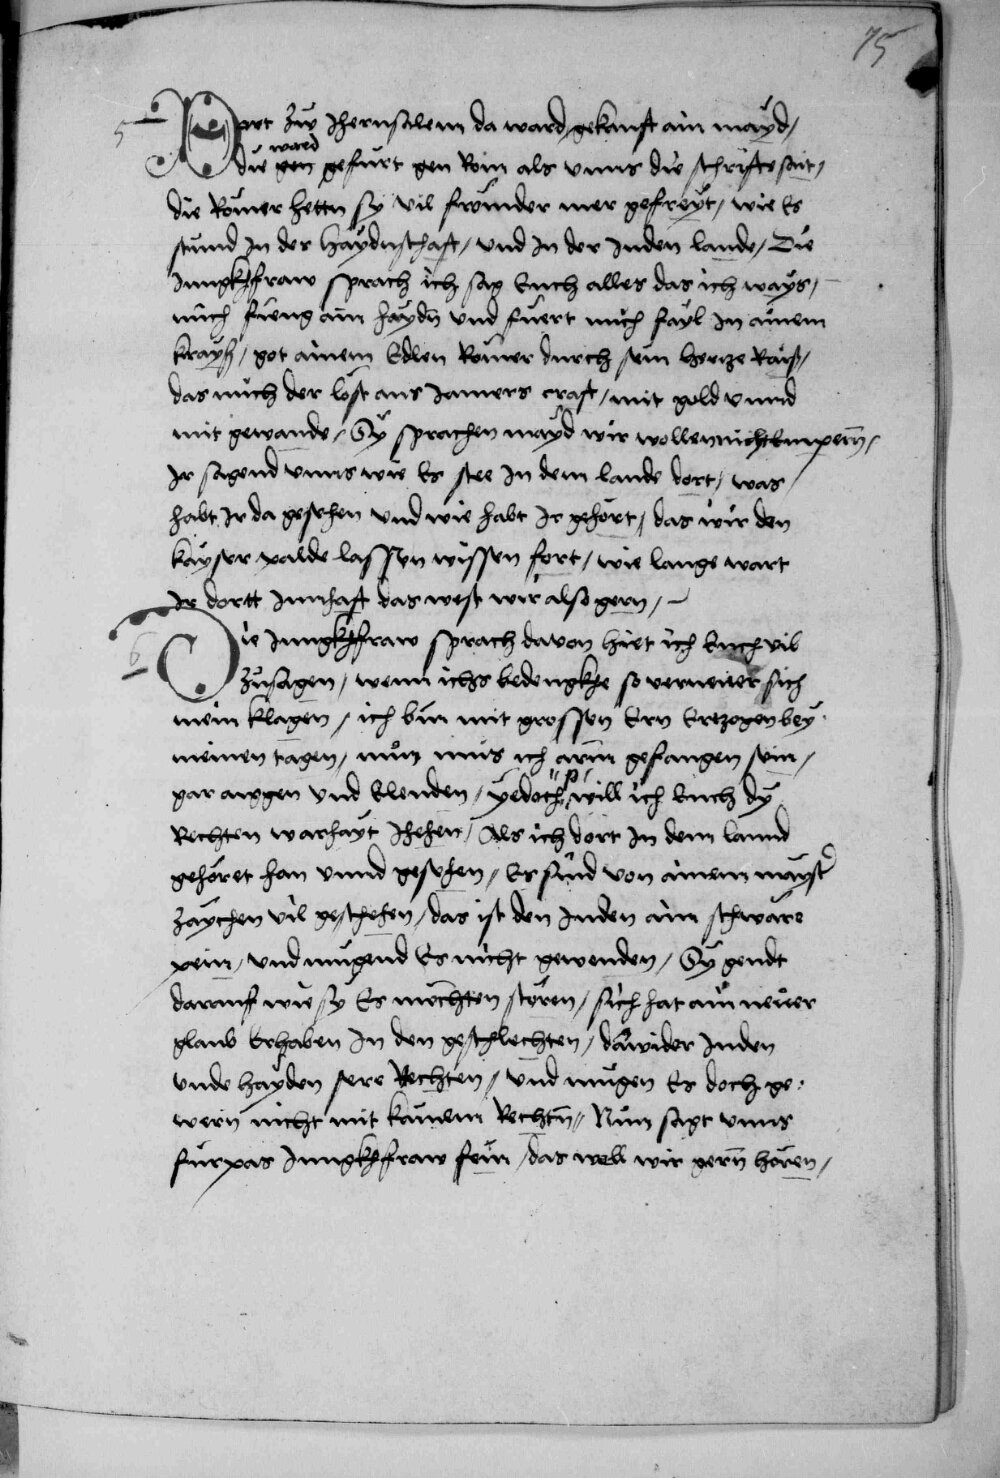 75
5 Dort zw Jherusalem da ward gekauft ain mayd /
ward
die gen gefürt gen Rom als vnns die schrifte sait /
die Römer hettn sy vil frömder mer gefreyt / wie Es
stuend In der haydnschaft / vnd In der Juden lande / Die
Jungkhfraw sprach ich sag Euch alles das ich ways /
mich fieng ain haydn vnd fuert mich fayl In ainem
krayß / got ainem Edlen Römer durch sein hercze Raiß /
das mich der löst aus Jamers craft / mit gold vnnd
mit gewande / Sy sprachen mayd wir wollen nicht Empern /
Ir sagend vnns wie Es stee In dem lande dort / was
habt Ir da gesehen vnd wie habt Ir gehört / das wir den
kayser palde lassen wissen fort / wie lange wart
Ir dortt Innhaft das west wir also gern /
6 Die Jungkhfraw sprach davon hiet ich Euch vil
zusagen / wenn ichs bedengkhe so vernewer sich
mein klagen / ich bin mit grossen Ern Erzogen bey
meinen tagen / nun mus ich arm gefangen sein /
gar aygen vnd Elenden / yedoch so will ich Euch dy
Rechten warhayt Jhehen / Als ich dort In dem lannd
gehöret han vnnd gesehen / Es sind von ainem mayster
zaychen vil geschehen / das ist den Juden ain schwäre
pein / vnd mugend Es nicht gewenden / Sy gendt
darauf wie sy Es möchten stören / sich hat ain newer
glaub Erhaben In den geschlechten / dawider Juden
vnde hayden sere Vechten / vnd mugen Es doch ge-
wern nicht mit kainem Rechtn / Nun sagt vnns
fürpas Jungkhfraw fein / das well wir gern hören /